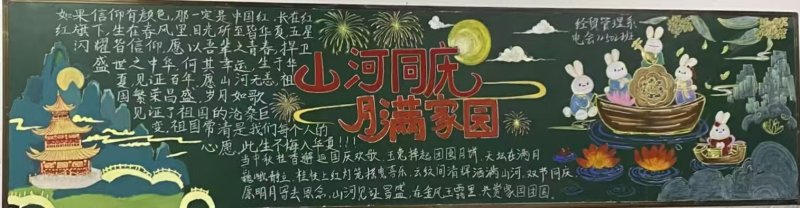 如果信仰有颜色,那一定是中国红,长在红
红旗下,生在春风里,目光所至皆华夏,五星
闪耀皆信仰,愿以吾辈之青春,捍卫
盛世之中华,何其幸运,生于华
夏,见证百年,愿山河无恙,祖
国繁荣昌盛,岁月如歌
见证了祖国的沧桑巨
变,祖国常清是我们每个人的
心愿,此生不悔入华夏!!!
山河同庆
月满家园
经贸管理系
电会22502班
当中秋桂香邂逅国庆欢歌,玉兔捧起团圆月饼,天坛在满月
巍峨静立,桂枝上红灯笼摇曳喜乐,云纹间清辉洒满山河,双节同庆
愿明月寄去思念,山河见证盛,在金风玉露里,共赏家国团圆.